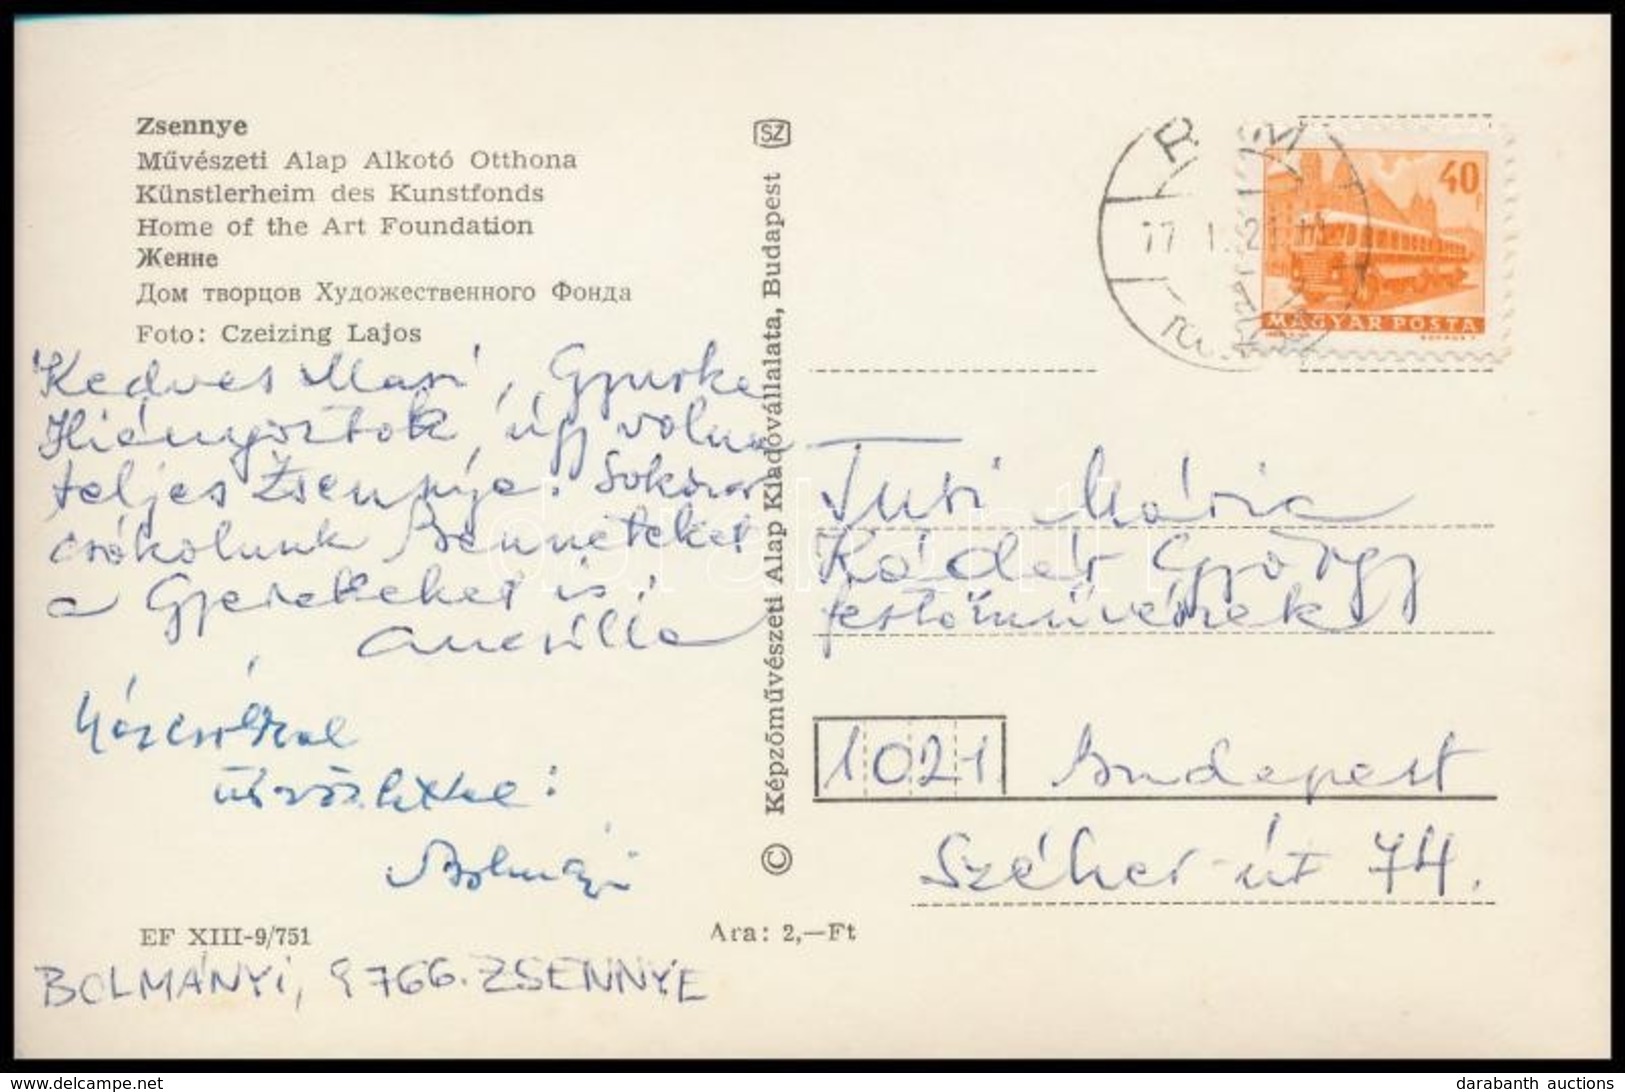 Zsennye
Művészeti Alap Alkotó Otthona
Künstlerheim des Kunstfonds
Home of the Art Foundation
Женне
Дом творцов Художественного Фонда
Foto: Czeizing Lajos
Kedves Mari, Gyurka
Hiányoztok, úgy volna
teljes Zsennye. Sokszor
csókolunk Benneteket
a Gyerekeket is:
Ancsilla
Kézcsókkal
üdvözlettel:
Bolmányi
EF XIII-9/751
Ara: 2,—Ft
BOLMÁNYI, 9766. ZSENNYE
SZ
© Képzőművészeti Alap Kiadóvállalata, Budapest
RUM
77 1. 21
40f
MAGYAR POSTA
Túri Mária
Kádár György
festőművészek
1021 Budapest
Széher út 74.
darabanth
darabanth auctions